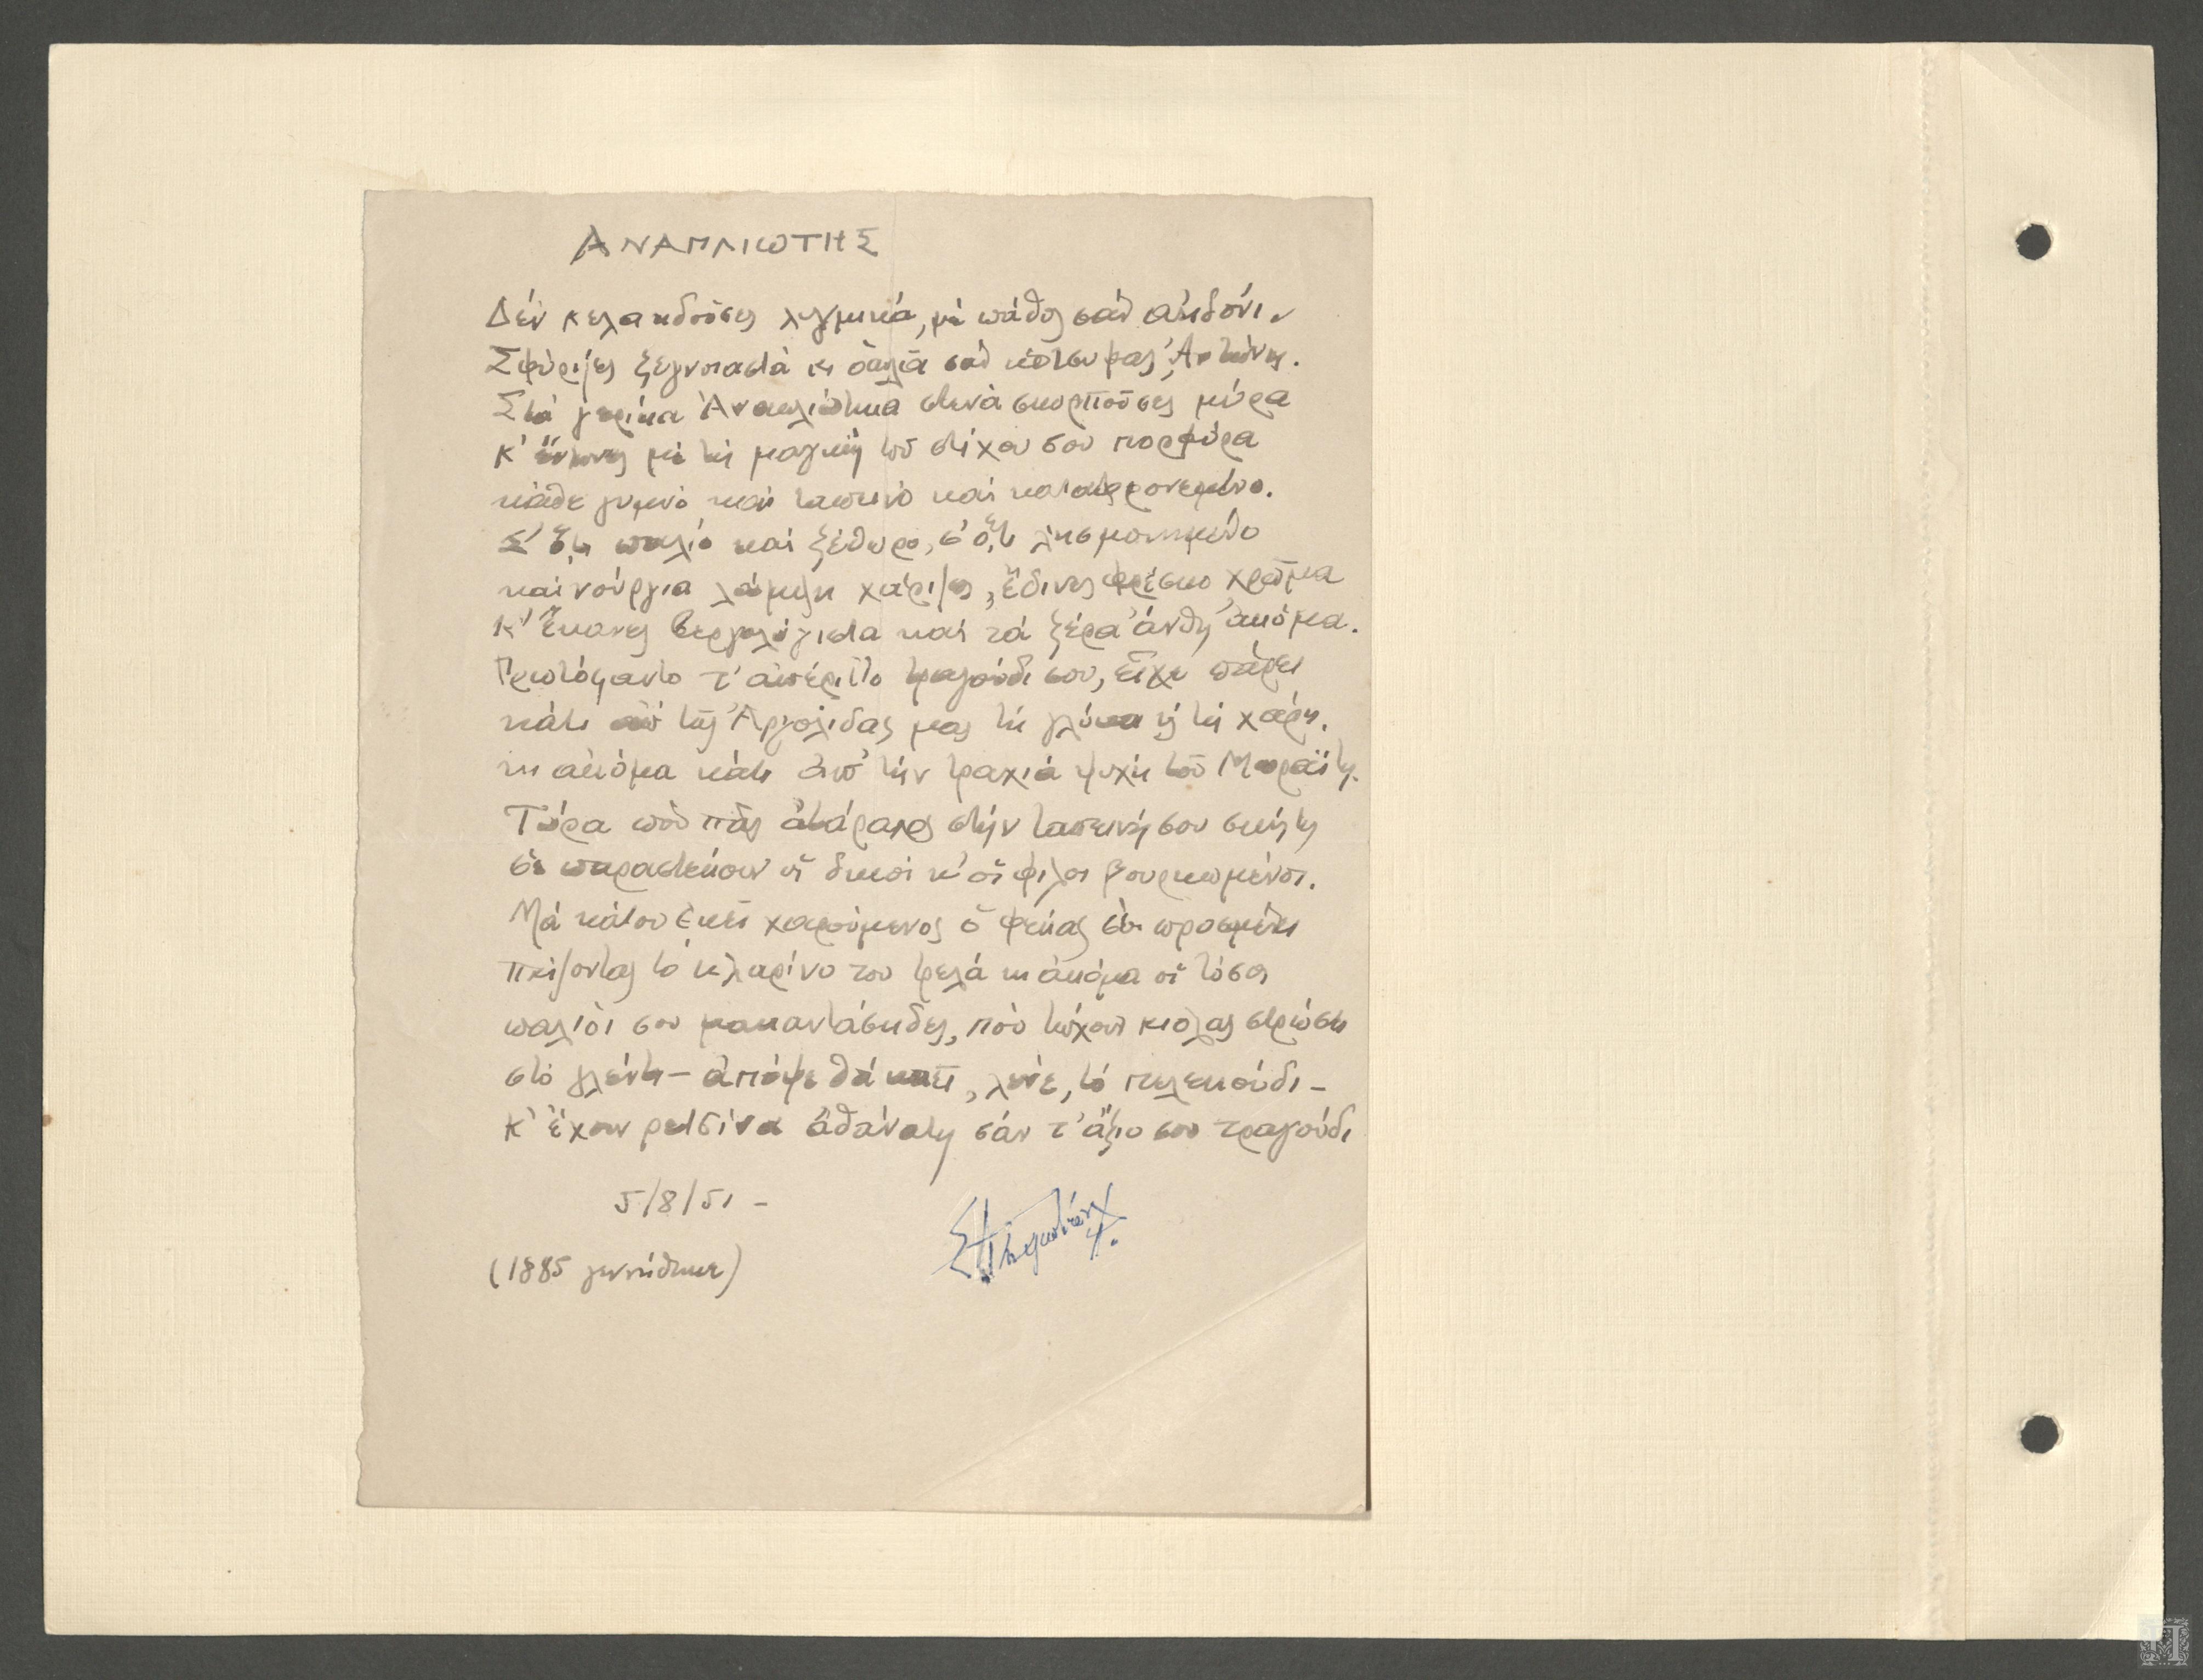 ΑΝΑΠΛΙΩΤΗΣ
Δέν κελαηδοῦσες λυγμικά, μέ πάθος σάν ἀηδόνι.
Σφύριζες ξεγνοιαστά κι ἁπλᾶ σάν κότσυφας, Ἀντώνη.
Στά γέρικα Ἀναπλιώτικα στενά σκορποῦσες μύρα
κ' ἔντυνες μέ τή μαγική τοῦ στίχου σου πορφύρα
κάθε γυμνό καί ταπεινό καί καταφρονεμένο.
Σ' ὅ,τι παλιό καί ξέθωρο, σ' ὅ,τι λησμονημένο
καινούργια λάμψη χάριζες, ἔδινες φρέσκο χρῶμα
κ' ἔκανες βεργολύγιστα καί τά ξέρα ἄνθη ἀκόμα.
Πρωτόφαντο τ' ἀπέριττο τραγούδι σου, εἶχε πάρει
κάτι ἀπ' τῆς Ἀργολίδας μας τή γλύκα ἤ τή χάρη.
κι ἀκόμα κάτι ἀπ' τήν τραχιά ψυχή τοῦ Μωραΐτη.
Τώρα πού πᾶς ἀτάραχος στήν ταπεινή σου
σέ παραστέκουν οἱ δικοί κ' οἱ φίλοι βουρκωμένοι.
Μά κάτου ἐκεῖ χαρούμενος ὁ σέ προσμένει
παίζοντας τό κλαρίνο του τρελά κι ἀκόμα οἱ τόσοι
παλιοί σου μακαντάσηδες, πού τὤχουν κιόλας στρώσει
στό γλέντι – ἀπόψε θά καεῖ, λένε, τό πελεκούδι –
κ' ἔχουν ρετσίνα ἀθάνατη σάν τ' ἄξιο σου τραγούδι
5/8/51 –
(1885 γεννήθηκε)